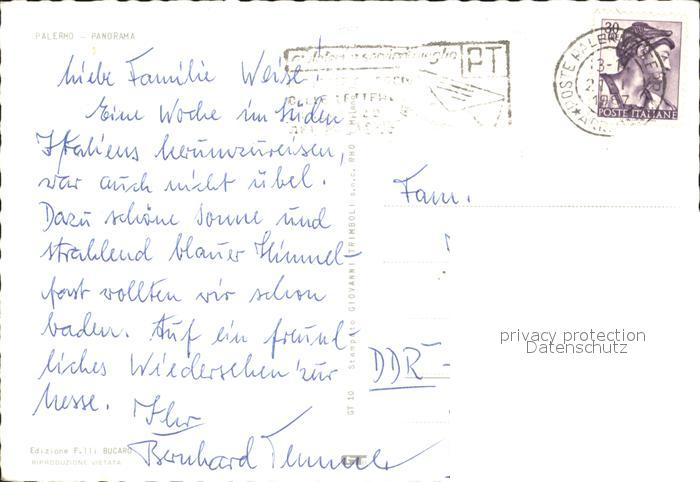 PALERMO - PANORAMA
Liebe Familie Weise!
Eine Woche im Süden
Italiens herumzureisen,
war auch nicht übel.
Dazu schöne Sonne und
strahlend blauer Himmel-
fast wollten wir schon
baden. Auf ein freund-
liches Wiedersehen zur
Messe. Ihr
Bernhard
Edizione F.lli BUCARO
RIPRODUZIONE VIETATA
GT 10 Stampato GIOVANNI TRIMBOLI s.n.c. RHO
PT
30
POSTE ITALIANE
1967
Fam.
DDR -
privacy protection
Datenschutz